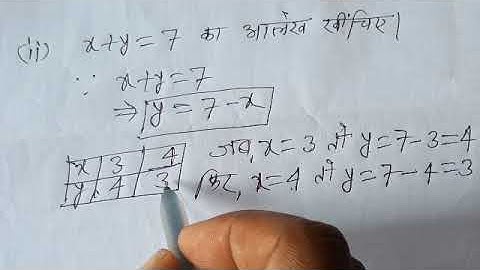 (ii) x+y=7 का आलेख खींचिए।
∵ x+y=7
⇒ y=7-x
x 3 4
y 4 3
जब, x=3 तो y=7-3=4
फिर, x=4 तो y=7-4=3